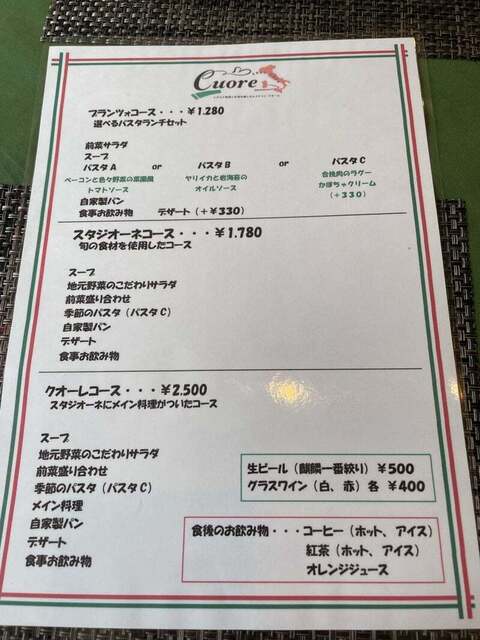 Cuore
プランツォコース・・・￥1.280
選べるパスタランチセット
前菜サラダ
スープ
パスタA or パスタB or パスタC
ベーコンと色々野菜の菜園風 ヤリイカと岩海苔の 合挽肉のラグー
トマトソース オイルソース かぼちゃクリーム
(+330)
自家製パン
食事お飲み物 デザート(+￥330)
スタジオーネコース・・・￥1.780
旬の食材を使用したコース
スープ
地元野菜のこだわりサラダ
前菜盛り合わせ
季節のパスタ(パスタC)
自家製パン
デザート
食事お飲み物
クオーレコース・・・￥2.500
スタジオーネにメイン料理がついたコース
スープ
地元野菜のこだわりサラダ
前菜盛り合わせ
季節のパスタ(パスタC)
メイン料理
自家製パン
デザート
食事お飲み物
生ビール(麒麟一番絞り)￥500
グラスワイン(白、赤)各 ￥400
食後のお飲み物・・・コーヒー(ホット、アイス)
紅茶(ホット、アイス)
オレンジジュース